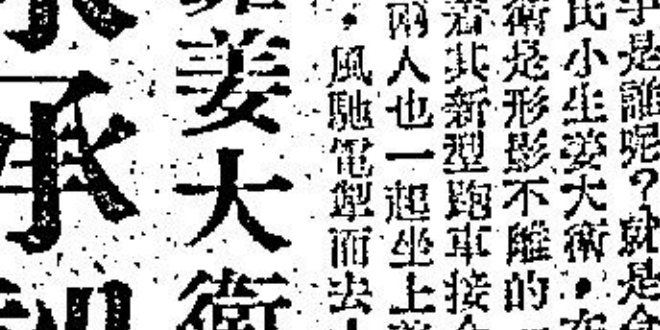 是誰呢？就是
氏小生姜大衛，
衛是形影不離的
着其新型跑車接
兩人也一起坐上
，風馳電掣而去
姜大衛
承